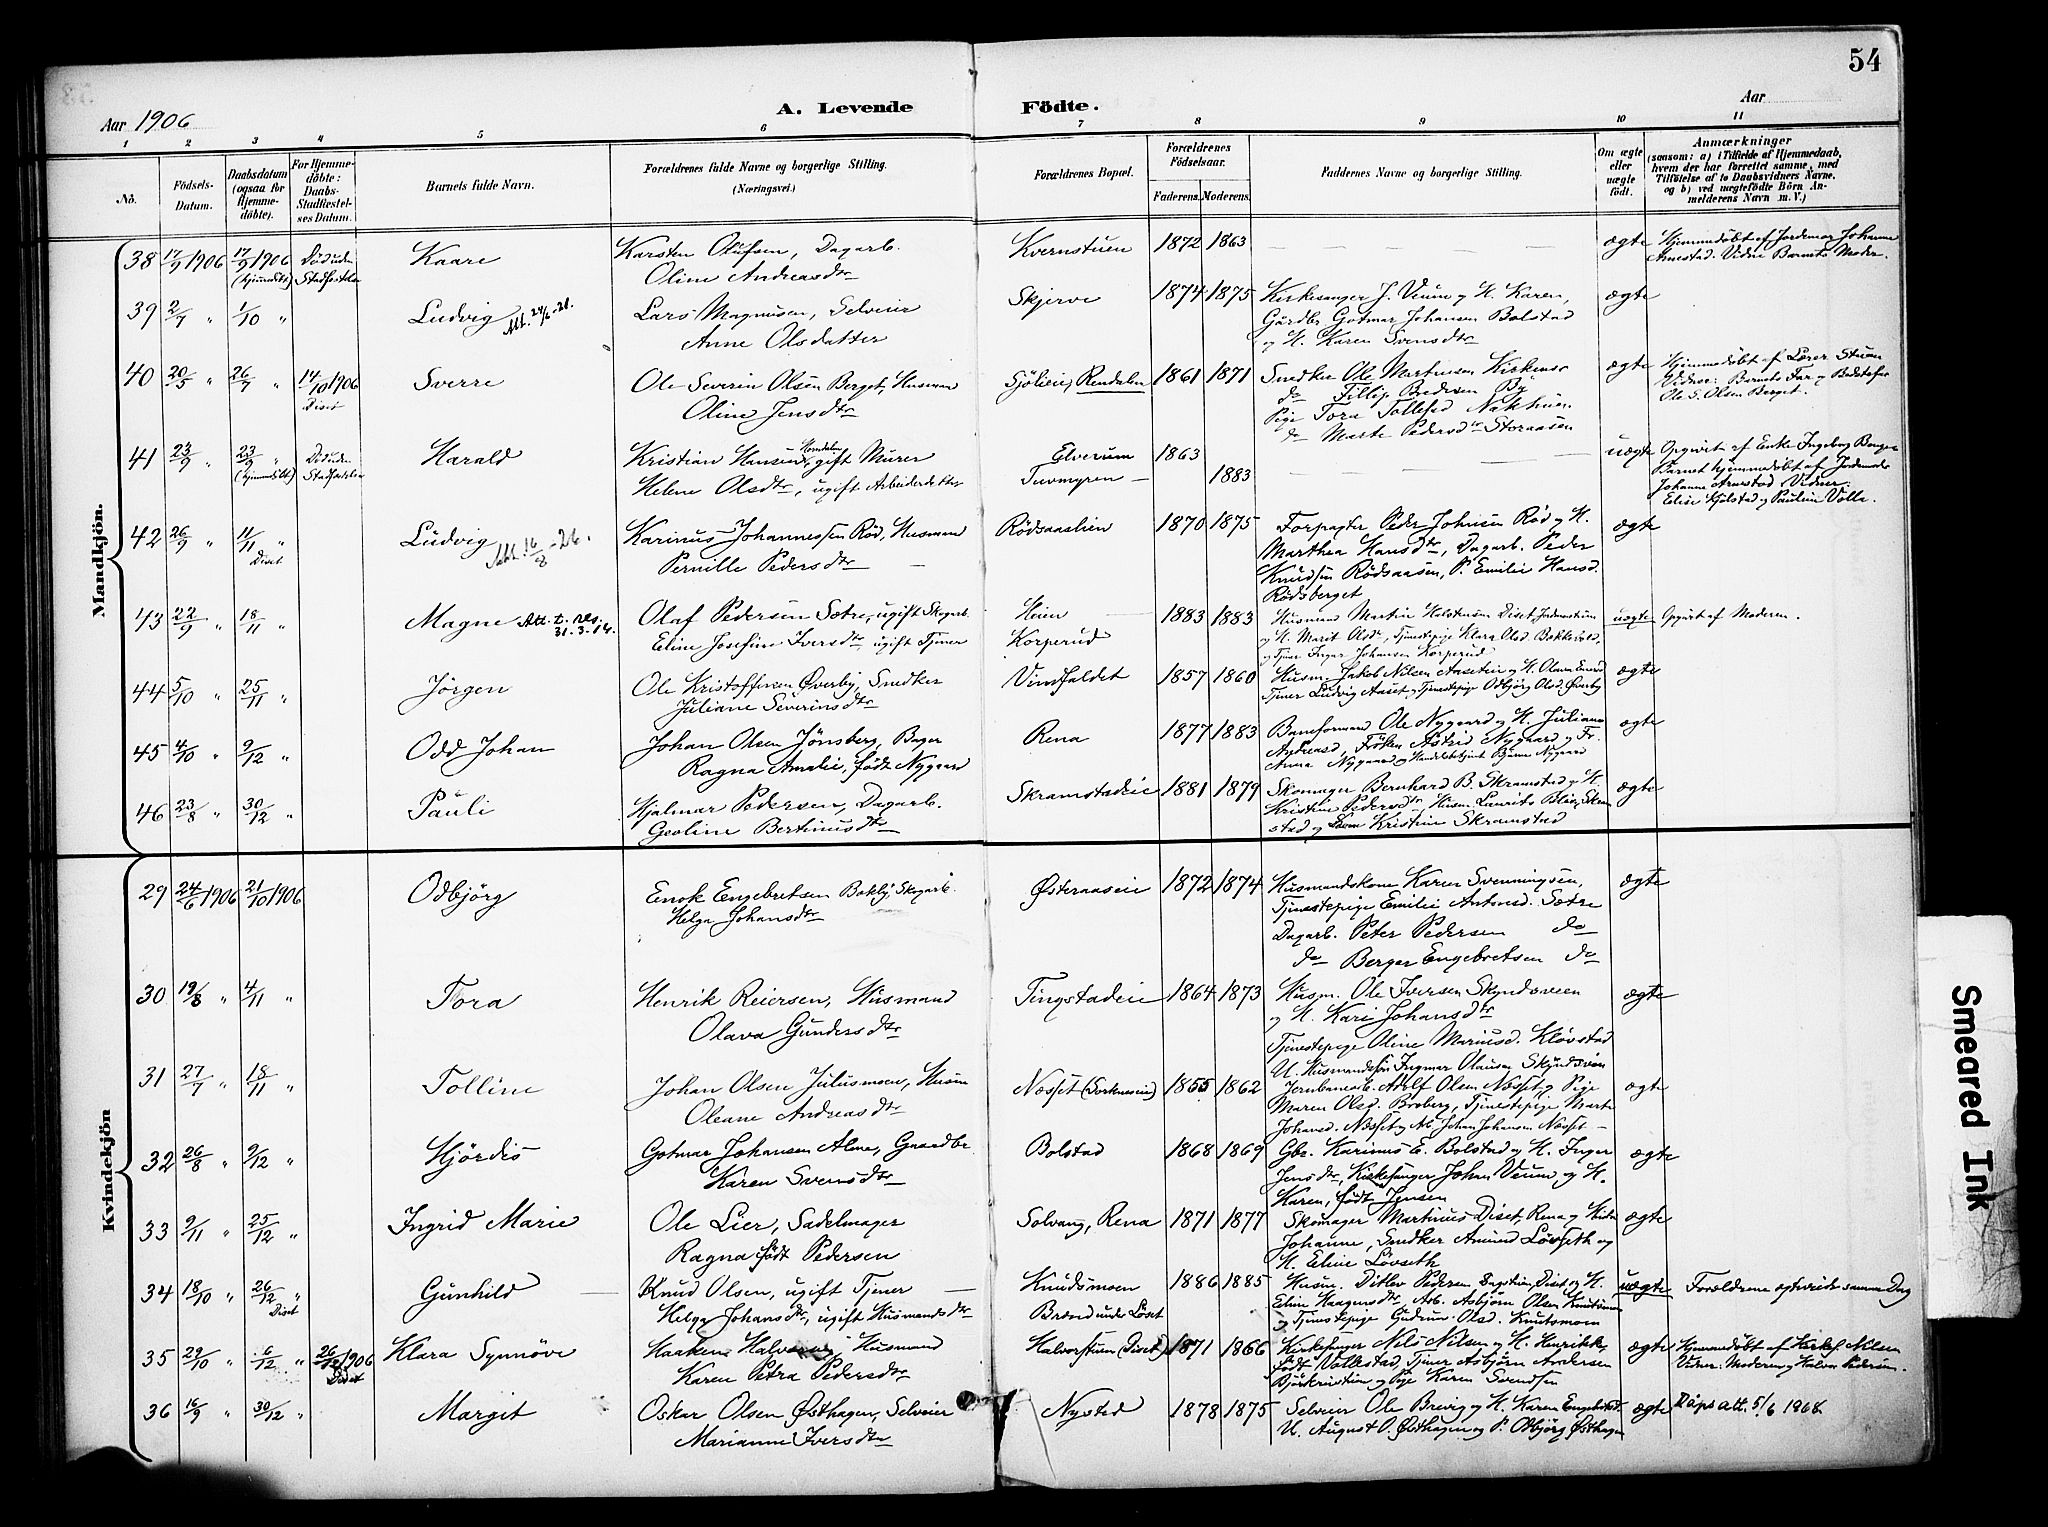 54
Aar 1906
A. Levende Födte.
Aar
1 2 3 4 5 6 7 8 9 10 11
No.
Födsels-Datum.
Daabsdatum (ogsaa for Hjemmedöbte).
For Hjemmedöbte: Daabs-Stadfæstelses Datum.
Barnets fulde Navn.
Forældrenes fulde Navne og borgerlige Stilling. (Næringsvei.)
Forældrenes Bopæl.
Forældrenes Födselsaar.
Faderens. Moderens.
Faddernes Navne og borgerlige Stilling.
Om ægte eller uægte födt.
Anmærkninger
(saasom: a) i Tilfælde af Hjemmedaab, hvem der har forrettet samme, med Tilföielse af to Daabsvidners Navne, og b) ved uægtefödte Börn Anmelderens Navn m. V.)
Mandkjön.
38 17/9 1906 17/9 1906 (hjemmedöbt) Död uden Stadfæstelse Kaare
Karsten Olufsen, Dagarb.
Oline Andreasdtr
Kvernstuen 1872 1863 ægte
Hjemmedöbt af Jordemor Johanne
Arnestad. Vidne Barnets Moder.
39 2/7 " 1/10 " Ludvig Att. 24/6-21.
Lars Magnusen, Selveier
Anne Olsdatter
Skjerve 1874 1875
Kirkesanger J. Veum og H. Karen,
Gårdbr Gotmar Johansen Bolstad
og H. Karen Svensdtr
ægte
40 20/5 " 26/7 " 14/10 1906 Diset Sverre
Ole Severin Olsen Berget, Husmand
Oline Jensdtr
Sjölieie, Rendalen 1861 1871
Snedker Ole Martinsen Kirkener
do Fillip Bredesen By
Pige Tora Tollefsd Nakhuen
do Marte Pedersdtr Storaasen
ægte
Hjemmedöbt af Lærer Stuen
Vidner: Barnets Far og Bedstefar
Ole S. Olsen Berget.
41 23/9 " 23/9 " (hjemmedöbt) Död uden Stadfæstelse Harald
Kristian Hansen, gift Murer
Helene Olsdtr, ugift Arbeiderdatter
Elverum 1863
Tuvmyren 1883
uægte
Opgivet af Enke Ingeborg
Barnet hjemmedöbt af Jordemoder
Johanne Arnestad Vidner:
Elise Hjelstad og Pauline Volle.
42 26/9 " 11/11 " Diset Ludvig Att. 16/8-26.
Karinus Johannessen Rød, Husmand
Pernille Pedersdtr
Rödsaaslien 1870 1875
Forpagter Peder Johnsen Rød og H.
Marthea Hansdtr, Dagarb. Peder
Knudsen Rödsaasen, P. Emilie Hansd.
Rödsberget
ægte
43 22/9 " 18/11 " Magne Att. t. 31.3.14.
Olaf Pedersen Sætre, ugift Skogarb.
Eline Josefine Iversdtr ugift Tjener
Heien
Korperud
1883 1883
Husmand Martin Halstensen Diset
og H. Marit Olsdtr, Tjenestepige Klara Olsd. Bekkevold,
og Tjener Ingvar Johansen Korperud
uægte Opgivet af Moderen.
44 5/10 " 25/11 " Jörgen
Ole Kristoffersen Øverby, Snedker
Juliane Severinsdtr
Vindfaldet 1857 1860
Husm. Jakob Nilsen Aaseteie og H. Olava
Tjener Ludvig Aaset og Tjenestepige Odbjörg Olsd. Øverby
ægte
45 4/10 " 9/12 " Odd Johan
Johan Olsen Jönsberg, Bager
Ragna Amalie, födt Nygaard
Rena 1877 1883
Baneformand Ole Nygaard og H. Juliane
Andreasd, Fröken Astrid Nygaard og Fr.
Anna Nygaard og Handelsbetjent Bjarne Nygaard
ægte
46 23/8 " 30/12 " Pauli
Hjalmar Pedersen, Dagarb.
Geoline Bertinusdtr
Skramstadeie 1881 1879
Skomager Bernhard B. Skramstad og H.
Kristine Pedersdtr, Husm. Laurits
stad og Kristine Skramstad
ægte
Kvindekjön
29 24/6 1906 21/10 1906 Odbjörg
Enok Engebretsen Bakby, Skogarb.
Helga Johansdtr
Østeraaseie 1872 1874
Husmandskone Karen Svenningsen,
Tjenestepige Emilie Antonsd. Sætre
Dagarb. Peter Pedersen do
do Berger Engebretsen do
ægte
30 19/8 " 4/11 " Tora
Henrik Reiersen, Husmand
Olava Gundersdtr
Tingstadeie 1864 1873
Husm. Ole Iversen Skyndsveen
og H. Kari Johansdtr
Tjenestepige Oline Mariusd. Klövstad
U. Husmandssön Ingmar Olausen Skyndsveen
ægte
31 27/7 " 18/11 " Tolline
Johan Olsen Juliusmoen, Husm
Oleane Andreasdtr
Næsset (Sorknæseie) 1855 1862
Jernbanearb. Adolf Olsen Næsset og Pige
Maren Olsd. Broberg, Tjenestepige Marte
Johansd. Næsset og Arb. Johan Johansen Næsset
ægte
32 26/8 " 9/12 " Hjördis
Gotmar Johansen Alme, Gaardbr
Karen Svensdtr
Bolstad 1868 1869
Gbr. Karinus E. Bolstad og H. Inger
Jensdtr, Kirkesanger Johan Veum, og H.
Karen, födt Jensen
ægte
33 9/11 " 25/12 " Ingrid Marie
Ole Lier, Sadelmager
Ragna födt Pedersen
Solvang, Rena 1871 1877
Skomager Martinus Diset, Rena og Hustru
Johanne, Snedker Amund Lövseth og
H. Eline Lövseth
ægte
34 18/10 " 26/12 " Diset Gunhild
Knud Olsen, ugift Tjener
Helga Johansdtr, ugift Husmandsdtr
Knudsmoen
Brænd under Löset
1886 1885
Husm. Ditlev Pedersen Diset og H.
Eline Haagensdtr, Arb. Asbjörn Olsen Knutsmoen
og Tjenestepige Gudrun Olsd. Knutsmoen
uægte Forældrene ægteviede samme Dag
35 29/10 " 6/12 " 26/12 1906 Diset Klara Synnöve
Haaken Halvorsen, Husmand
Karen Petra Pedersdtr
Halvorstuen (Diset) 1871 1866
Kirkesanger Nils Nilsen og H. Henrikke,
födt Volkstad, Tjener Asbjörn Andersen
Björkerustuen og Pige Karen Svendsen
ægte
Hjemmedöbt af Kirkes. Nilsen
Vidner: Moderen og Halvor Pedersen.
36 16/9 " 30/12 " Margit
Oskar Olsen Østhagen, Selveier
Marianne Iversdtr
Nysted 1878 1875
Selveier Ole Brevig og H. Karen Engebretsd.
U. August O. Østhagen og P. Odbjörg Østhagen
ægte Dåpsatt. 5/6 1968.
Smeared Ink